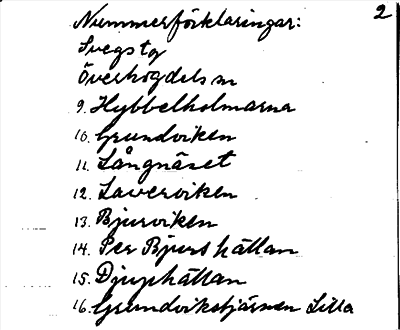 2
Nummerförklaringar:
Svegs tg
Överhogdels sn
9. Hybbelholmarna
10. Grundviken
11. Långnäset
12. Laverviken
13. Bjurviken
14. Per Bjurs hällan
15. Djuphällan
16. Grundvikstjärnen Lilla